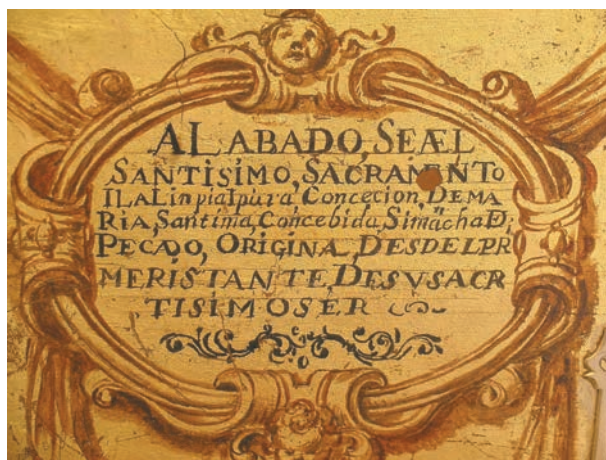 ALABADO, SEÆL
SANTISIMO, SACRAMENTO
ILALinpiaIpura, Concecion, DEMA
RIA, Santima, Concebida, SimächaĐ;
PECADO, ORIGINA, DESDELPR
MERISTANTE, DESVSACR
TISIMOSER